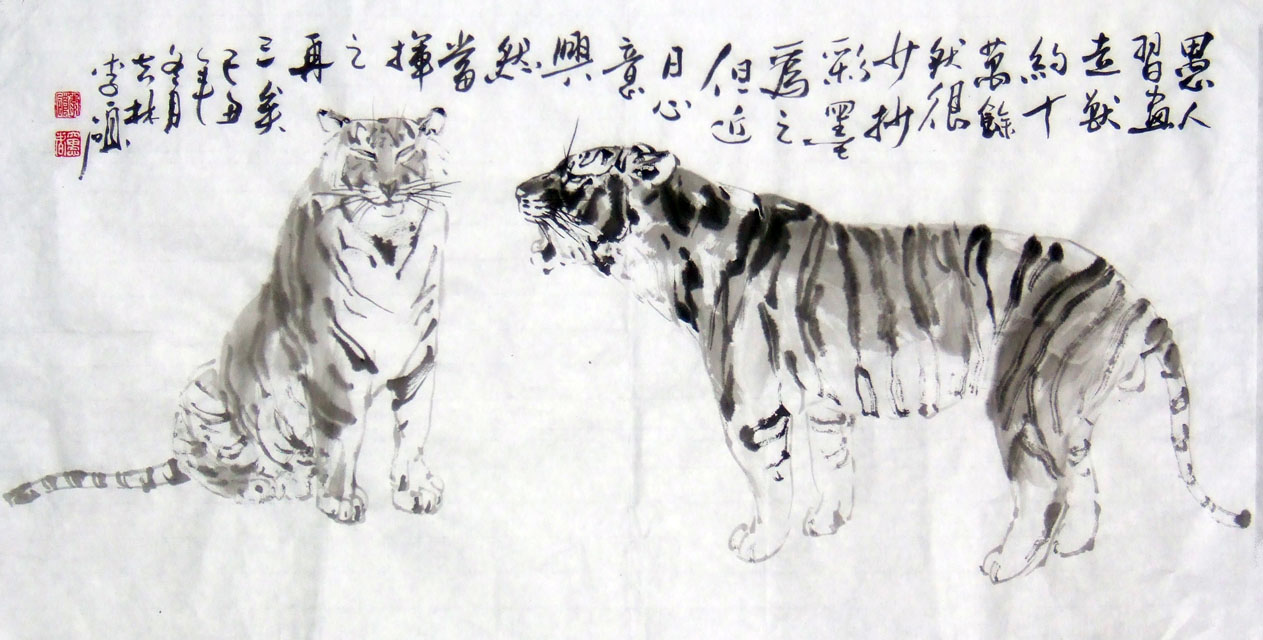 愚人
習畫
走獸
約十
萬餘
狀很
少抄
彩墨
爲之
但近
日心
意
興
然
當
揮
之
再
三矣
己丑
年
冬月
吉林
李